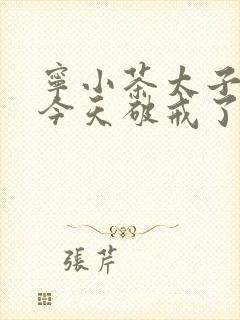 寧小茶太子
今天破戒了
張芹